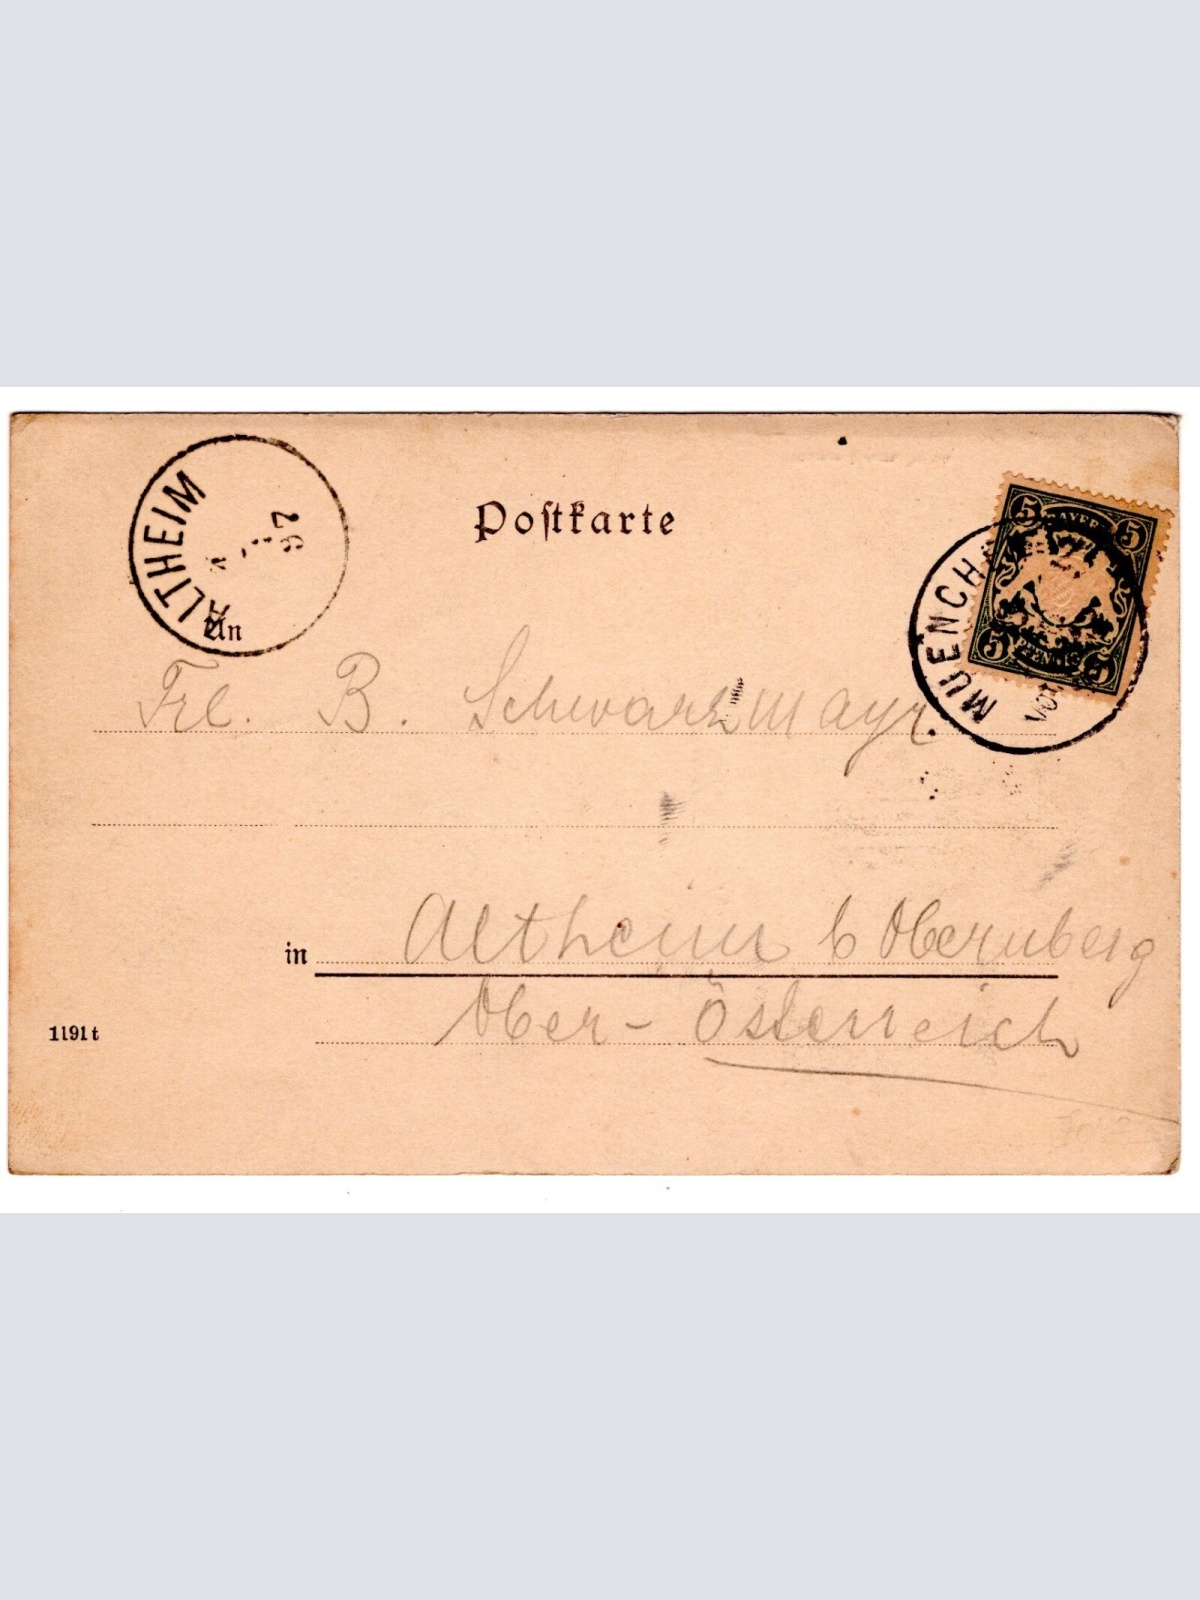 Postkarte
ALTHEIM
97
BAYERN
5 5
5 PFENNIG 5
MUENCHEN
VOR
An
Frl. B. Schwarzmayr.
in Altheim b Obernberg
Ober-Österreich
1191t